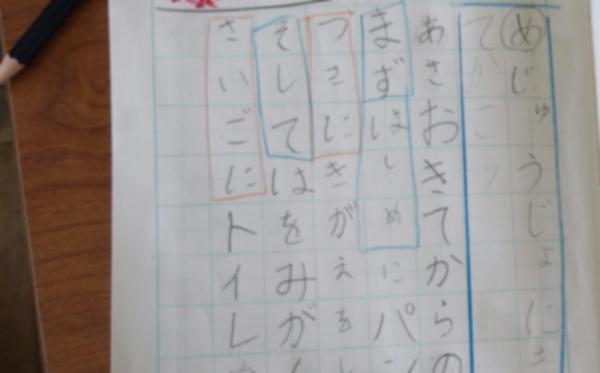 めじゅうじょに
あさおきてから
まずはじめにパン
つぎにきがえを
そしてはをみが
さいごにトイレ